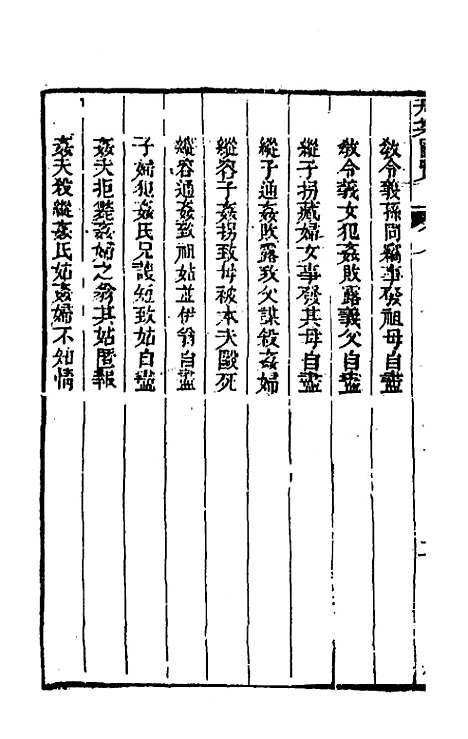 教令義孫同竊事發祖母自盡
教令義女犯姦敗露義父自盡
縱子拐藏婦女事發其母自盡
縱子通姦敗露致父謀殺姦婦
縱容子姦拐致母被本夫毆死
縱容通姦致祖姑並伊翁自盡
子婦犯姦氏兄護短致姑自盡
姦夫拒斃姦婦之翁其姑匿報
姦夫殺縱姦氏姑姦婦不知情